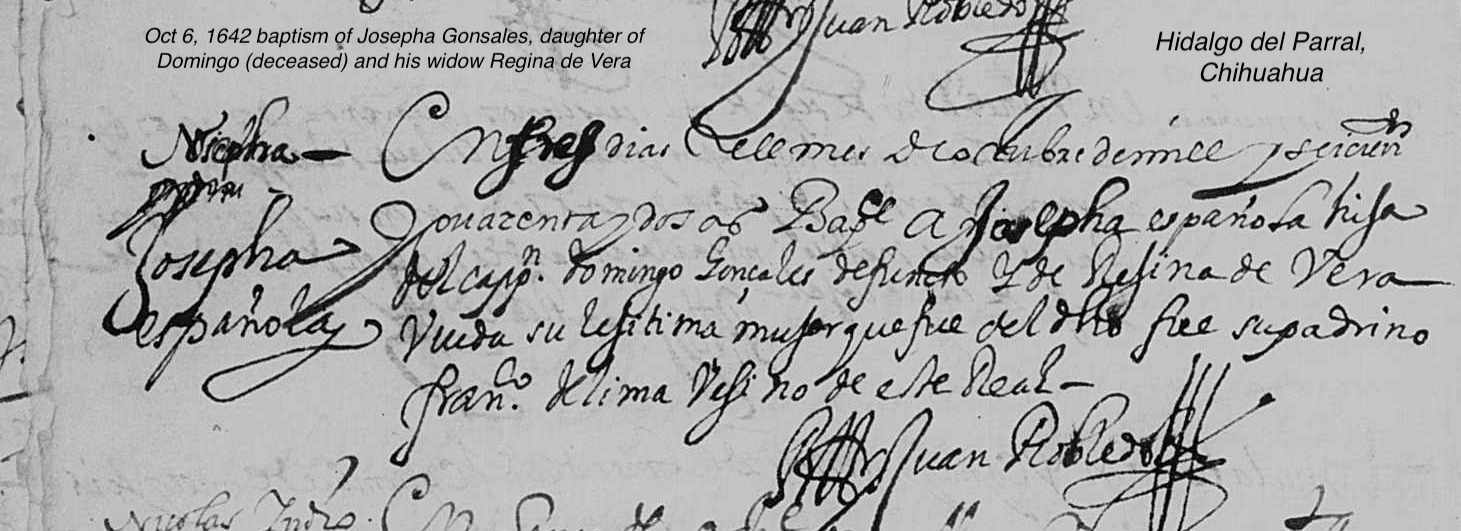 Oct 6, 1642 baptism of Josepha Gonsales, daughter of
Domingo (deceased) and his widow Regina de Vera
Hidalgo del Parral,
Chihuahua
Juan Robledo
Josepha
española
En tres dias del mes de octubre de mill y seicientos
quarenta y dos as Bapce A Josepha española hija
del cappn. domingo Gonçales defuncto Y de Resina de Vera
Viuda su lesitima muser que fue del dho fue su padrino
franco. de lima Vesino de este Real
Br Juan Robledo
Nicolas Indio